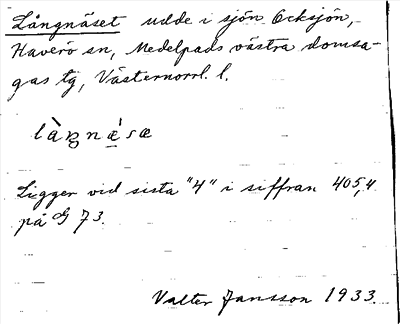 Långnäset udde i sjön Ocksjön,
Haverö sn, Medelpads västra domsa-
gas tg, Västernorrl. l.
làŋnǽsæ
Ligger vid sista "4" i siffran 405,4
på G 73.
Valter Jansson 1933.